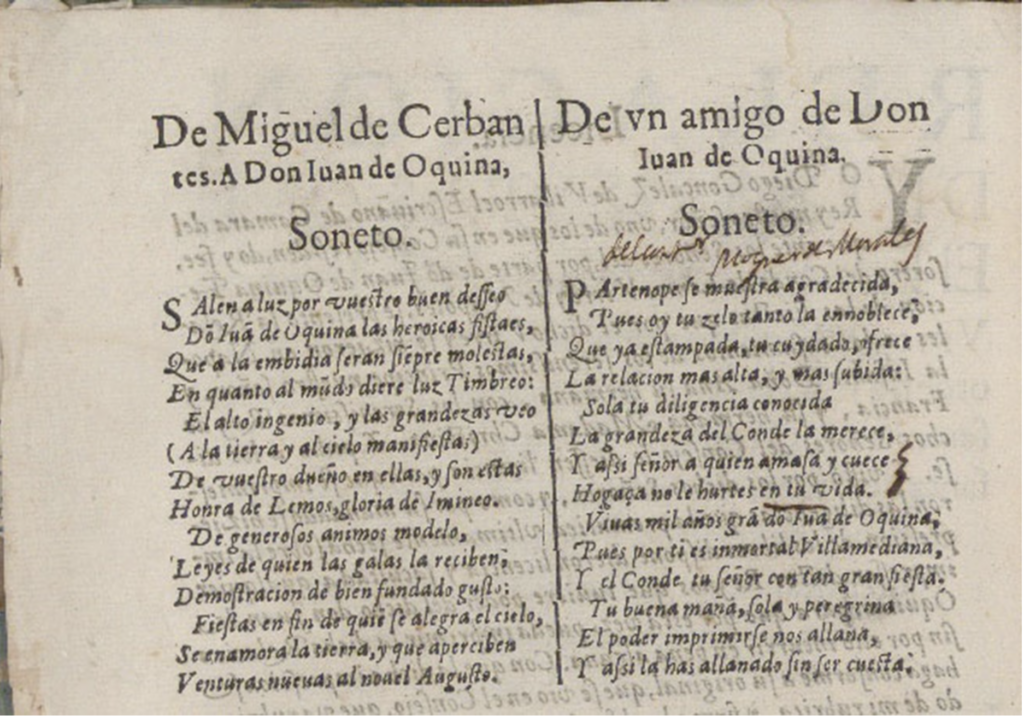 De Miguel de Cerban
tes. A Don Iuan de Oquina,
Soneto.
SAlen a luz por vuestro buen desseo
Dō Iuā de Oquina las heroicas fistaes,
Que a la embidia seran siēpre molestas,
En quanto al mūdo diere luz Timbreo:
El alto ingenio, y las grandezas veo
(A la tierra y al cielo manifiestas)
De vuestro dueño en ellas, y son estas
Honra de Lemos, gloria de Imineo.
De generosos animos modelo,
Leyes de quien las galas la reciben;
Demostracion de bien fundado gusto;
Fiestas en fin de quiē se alegra el cielo,
Se enamora la tierra, y que aperciben
Venturas nueuas al nouel Augusto.
De vn amigo de Don
Iuan de Oquina.
Soneto.
de Morales
PArtenope se muestra agradecida,
Pues oy tu zelo tanto la ennoblece,
Que ya estampada, tu cuydado, ofrece
La relacion mas alta, y mas subida:
Sola tu diligencia conocida
La grandeza del Conde la merece,
Y assi señor a quien amasa y cuece
Hogaça no le hurtes en tu vida.
Viuas mil años grā dō Iuā de Oquina,
Pues por ti es inmortal Villamediana,
Y el Conde tu señor con tan gran fiesta.
Tu buena maña, sola y peregrina
El poder imprimirse nos allana,
Y assi la has allanado sin ser cuesta.